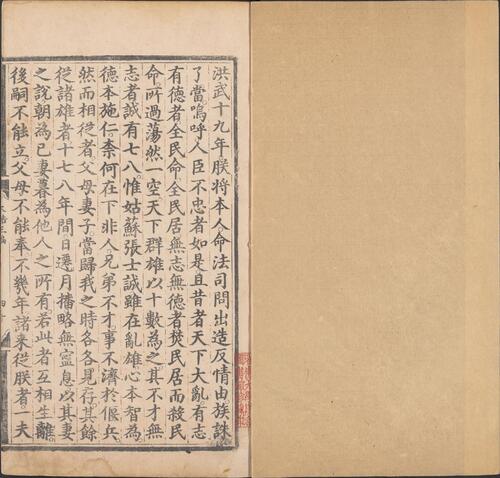 洪武十九年朕将本人命法司問出造反情由族誅
了當嗚呼人臣不忠者如是且昔者天下大亂有志
有德者全民命全民居無志無德者焚民居而殺民
命所過蕩然一空天下群雄以十數為之其不才無
志者誠有七八惟姑蘇張士誠雖在亂雄心本智為
德本施仁柰何在下非人兄弟不才事不濟於偃兵
然而相從者父母妻子當歸我之時各各見存其餘
從諸雄者十七八年間日遷月播略無寧息以其妻
之說朝為已妻暮為他人之所有若此者互相生離
後嗣不能立父母不能奉不幾年諸来從朕者一夫